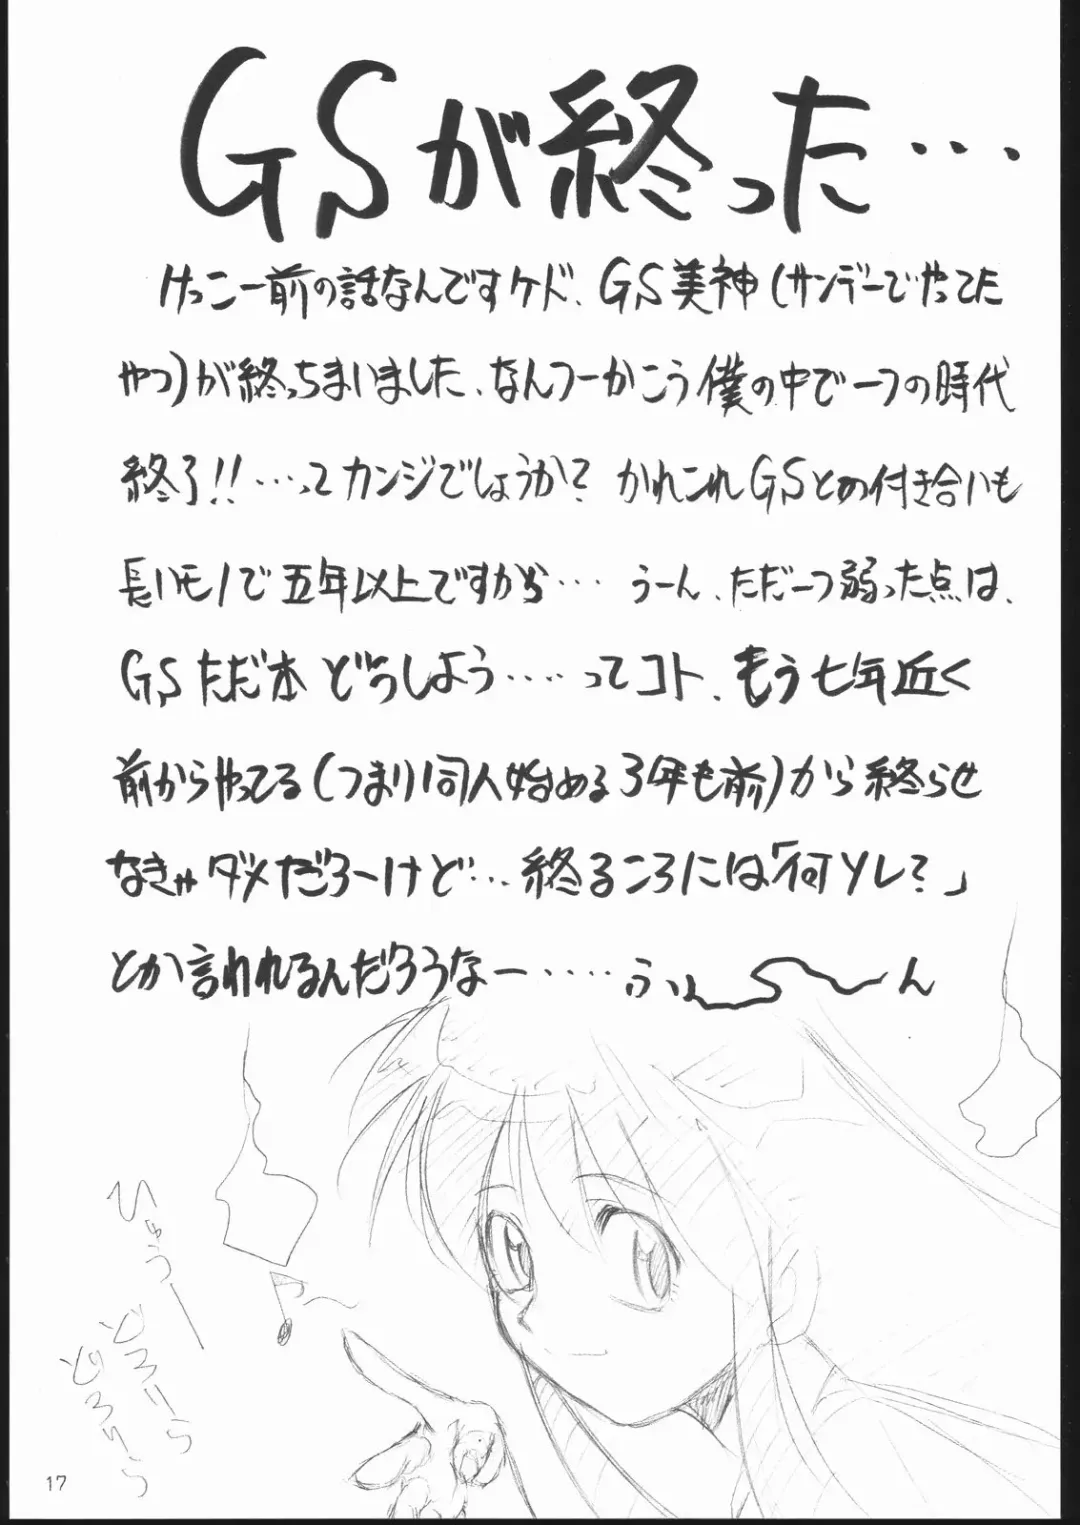 GSが終った…
けっこー前の話なんですケド、GS美神(サンデーでやってた
やつ)が終っちまいました、なんつーかこう僕の中で一つの時代
終了!!…ってカンジでしょうか?かれこれGSとの付き合いも
長いモノで五年以上ですから…うーん、ただ一つ弱った点は、
GSただ本どうしよう…‥ってコト、もう七年近く
前からやってる(つまり同人始める3年も前)から終らせ
なきゃダメだろーけど…終るころには「何ソレ?」
とか言われるんだろうなー‥…ふぃ〜〜ん
ひゅうー
どろりろ
どろりろ
17